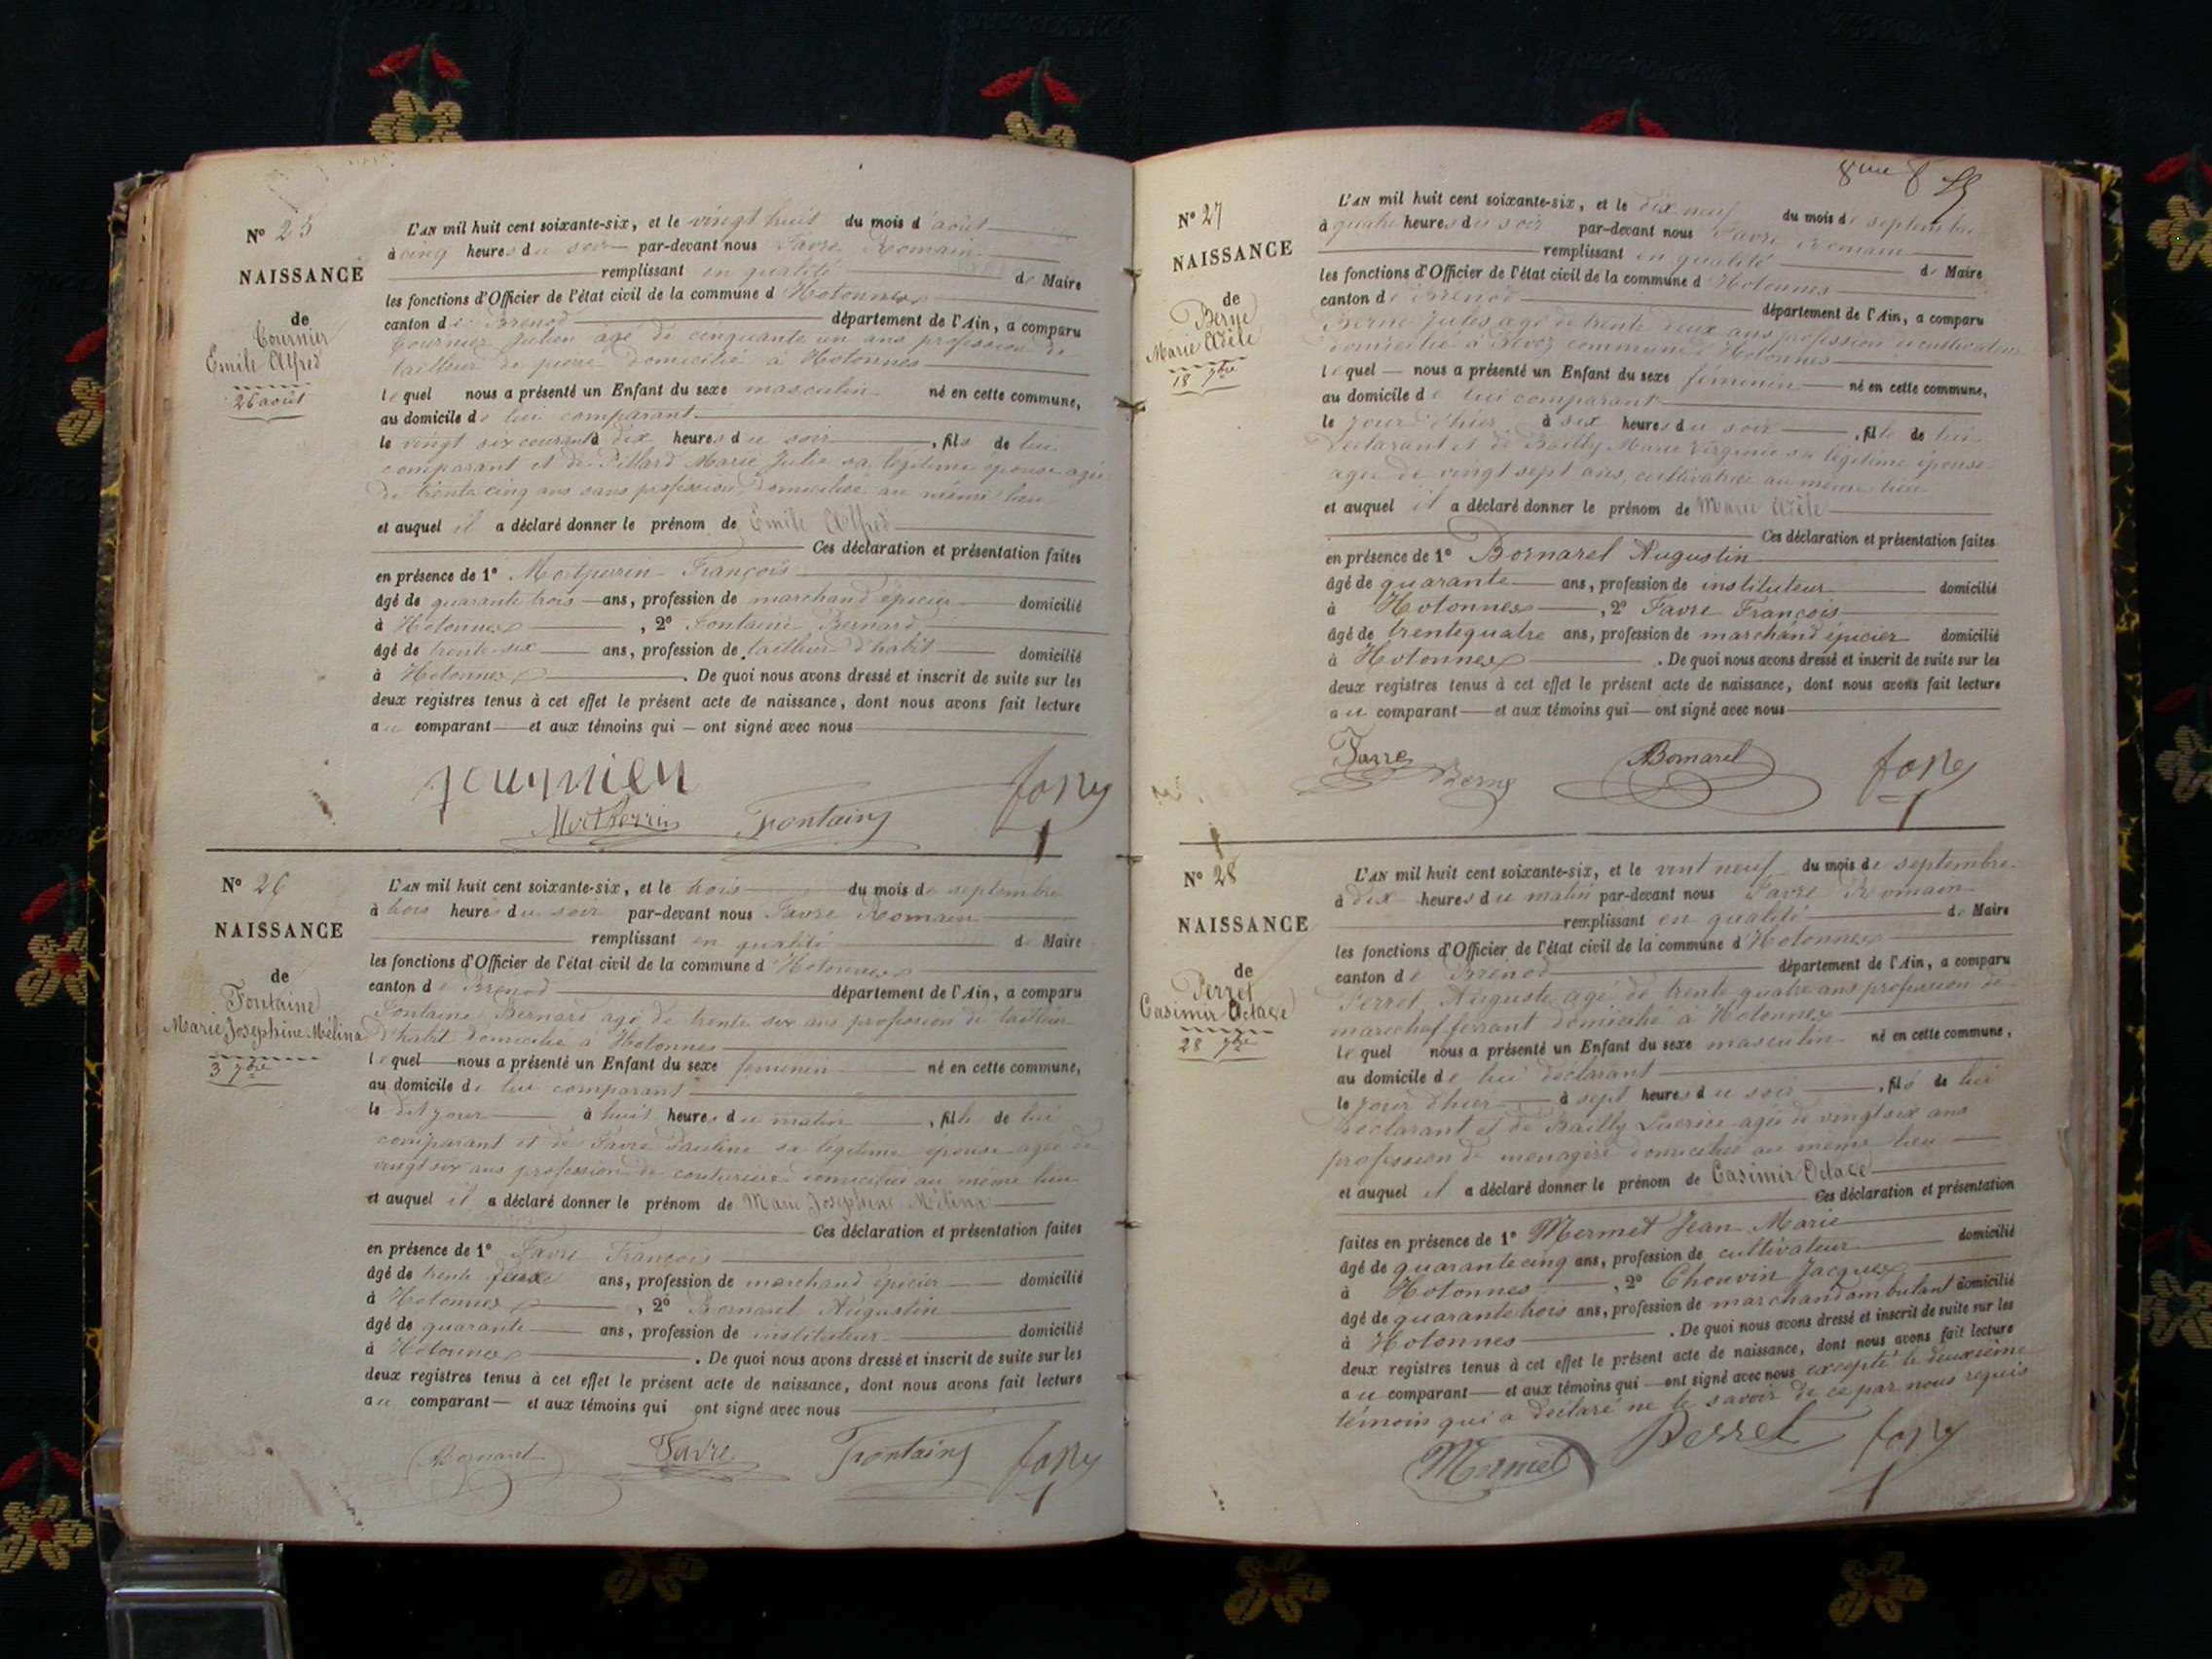 N° 25
NAISSANCE
de
Tournier
Emile Alfred
26 août
L'AN mil huit cent soixante-six, et le vingt huit du mois d'août
à cinq heures du soir par-devant nous Favre Romain
remplissant en qualité de Maire
les fonctions d'Officier de l'état civil de la commune d'Hotonnes
canton de Brenod département de l'Ain, a comparu
Tournier Julien agé de cinquante un ans profession de
tailleur de pierre domicilié à Hotonnes
lequel nous a présenté un Enfant du sexe masculin né en cette commune,
au domicile de lui comparant
le vingt six courant à dix heures du soir, fils de lui
comparant et de Pillard Marie Julie sa légitime épouse agée
de trente cinq ans sans profession domiciliée au même lieu
et auquel il a déclaré donner le prénom de Emile Alfred
Ces déclaration et présentation faites
en présence de 1° François
âgé de quarante trois ans, profession de marchand épicier domicilié
à Hotonnes, 2° Fontaine Bernard
âgé de trente six ans, profession de tailleur d'habit domicilié
à Hotonnes. De quoi nous avons dressé et inscrit de suite sur les
deux registres tenus à cet effet le présent acte de naissance, dont nous avons fait lecture
au comparant et aux témoins qui ont signé avec nous
Fontaine
N° 26
NAISSANCE
de
Fontaine
Marie Josephine Mélina
3 7bre
L'AN mil huit cent soixante-six, et le trois du mois de septembre
à trois heures du soir par-devant nous Favre Romain
remplissant en qualité de Maire
les fonctions d'Officier de l'état civil de la commune d'Hotonnes
canton de Brenod département de l'Ain, a comparu
Fontaine Bernard agé de trente six ans profession de tailleur
d'habit domicilié à Hotonnes
lequel nous a présenté un Enfant du sexe féminin né en cette commune,
au domicile de lui comparant
le dit jour à huit heures du matin, fille de lui
comparant et de Favre Pauline sa légitime épouse agée de
vingt six ans profession de couturière domiciliée au même lieu
et auquel il a déclaré donner le prénom de Marie Josephine Mélina
Ces déclaration et présentation faites
en présence de 1° Favre François
âgé de trente ans, profession de marchand épicier domicilié
à Hotonnes, 2° Bornarel Augustin
âgé de quarante ans, profession de instituteur domicilié
à Hotonnes. De quoi nous avons dressé et inscrit de suite sur les
deux registres tenus à cet effet le présent acte de naissance, dont nous avons fait lecture
au comparant et aux témoins qui ont signé avec nous
Bornarel Favre Fontaine
8me f
N° 27
NAISSANCE
de
Berne
Marie Adèle
18 7bre
L'AN mil huit cent soixante-six, et le dix neuf du mois de septembre
à quatre heures du soir par-devant nous Favre Romain
remplissant en qualité de Maire
les fonctions d'Officier de l'état civil de la commune d'Hotonnes
canton de Brenod département de l'Ain, a comparu
Berne Jules agé de trente deux ans profession de cultivateur
domicilié à commune d'Hotonnes
lequel nous a présenté un Enfant du sexe féminin né en cette commune,
au domicile de lui comparant
le jour d'hier à six heures du soir, fille de lui
déclarant et de Bailly Marie Virginie sa légitime épouse
agée de vingt sept ans, cultivatrice au même lieu
et auquel il a déclaré donner le prénom de Marie Adèle
Ces déclaration et présentation faites
en présence de 1° Bornarel Augustin
âgé de quarante ans, profession de instituteur domicilié
à Hotonnes, 2° Favre François
âgé de trente quatre ans, profession de marchand épicier domicilié
à Hotonnes. De quoi nous avons dressé et inscrit de suite sur les
deux registres tenus à cet effet le présent acte de naissance, dont nous avons fait lecture
au comparant et aux témoins qui ont signé avec nous
Favre Berne Bornarel
N° 28
NAISSANCE
de
Perret
Casimir Octave
28 7bre
L'AN mil huit cent soixante-six, et le vint neuf du mois de septembre
à dix heures du matin par-devant nous Favre Romain
remplissant en qualité de Maire
les fonctions d'Officier de l'état civil de la commune d'Hotonnes
canton de Brenod département de l'Ain, a comparu
Perret Auguste agé de trente quatre ans profession de
marechal ferrant domicilié à Hotonnes
lequel nous a présenté un Enfant du sexe masculin né en cette commune,
au domicile de lui déclarant
le jour d'hier à sept heures du soir, fils de lui
déclarant et de Bailly agée de vingt six ans
profession de menagère domiciliée au même lieu
et auquel il a déclaré donner le prénom de Casimir Octave
Ces déclaration et présentation
faites en présence de 1° Mermet Jean Marie
âgé de quarante cinq ans, profession de cultivateur domicilié
à Hotonnes, 2° Chouvin Jacques
âgé de quarante trois ans, profession de marchand ambulant domicilié
à Hotonnes. De quoi nous avons dressé et inscrit de suite sur les
deux registres tenus à cet effet le présent acte de naissance, dont nous avons fait lecture
au comparant et aux témoins qui ont signé avec nous excepté le deuxième
témoin qui a déclaré ne le savoir de ce par nous requis
Mermet Perret